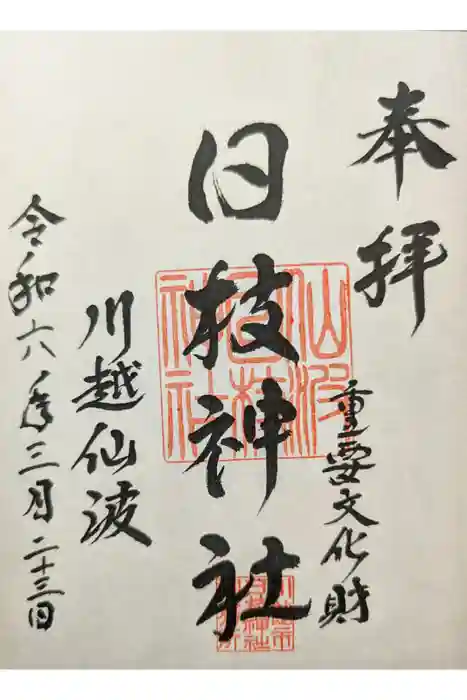 奉拝
重要文化財
日枝神社
仙波
日枝
神社
川越仙波
令和六年三月二十三日